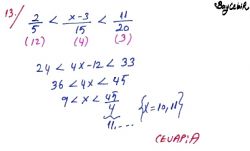 13./
2/5 < x-3/15 < 11/20
(12) (4) (3)
24 < 4x-12 < 33
36 < 4x < 45
9 < x < 45/4
11,....
{x=10,11}
CEVAP: A